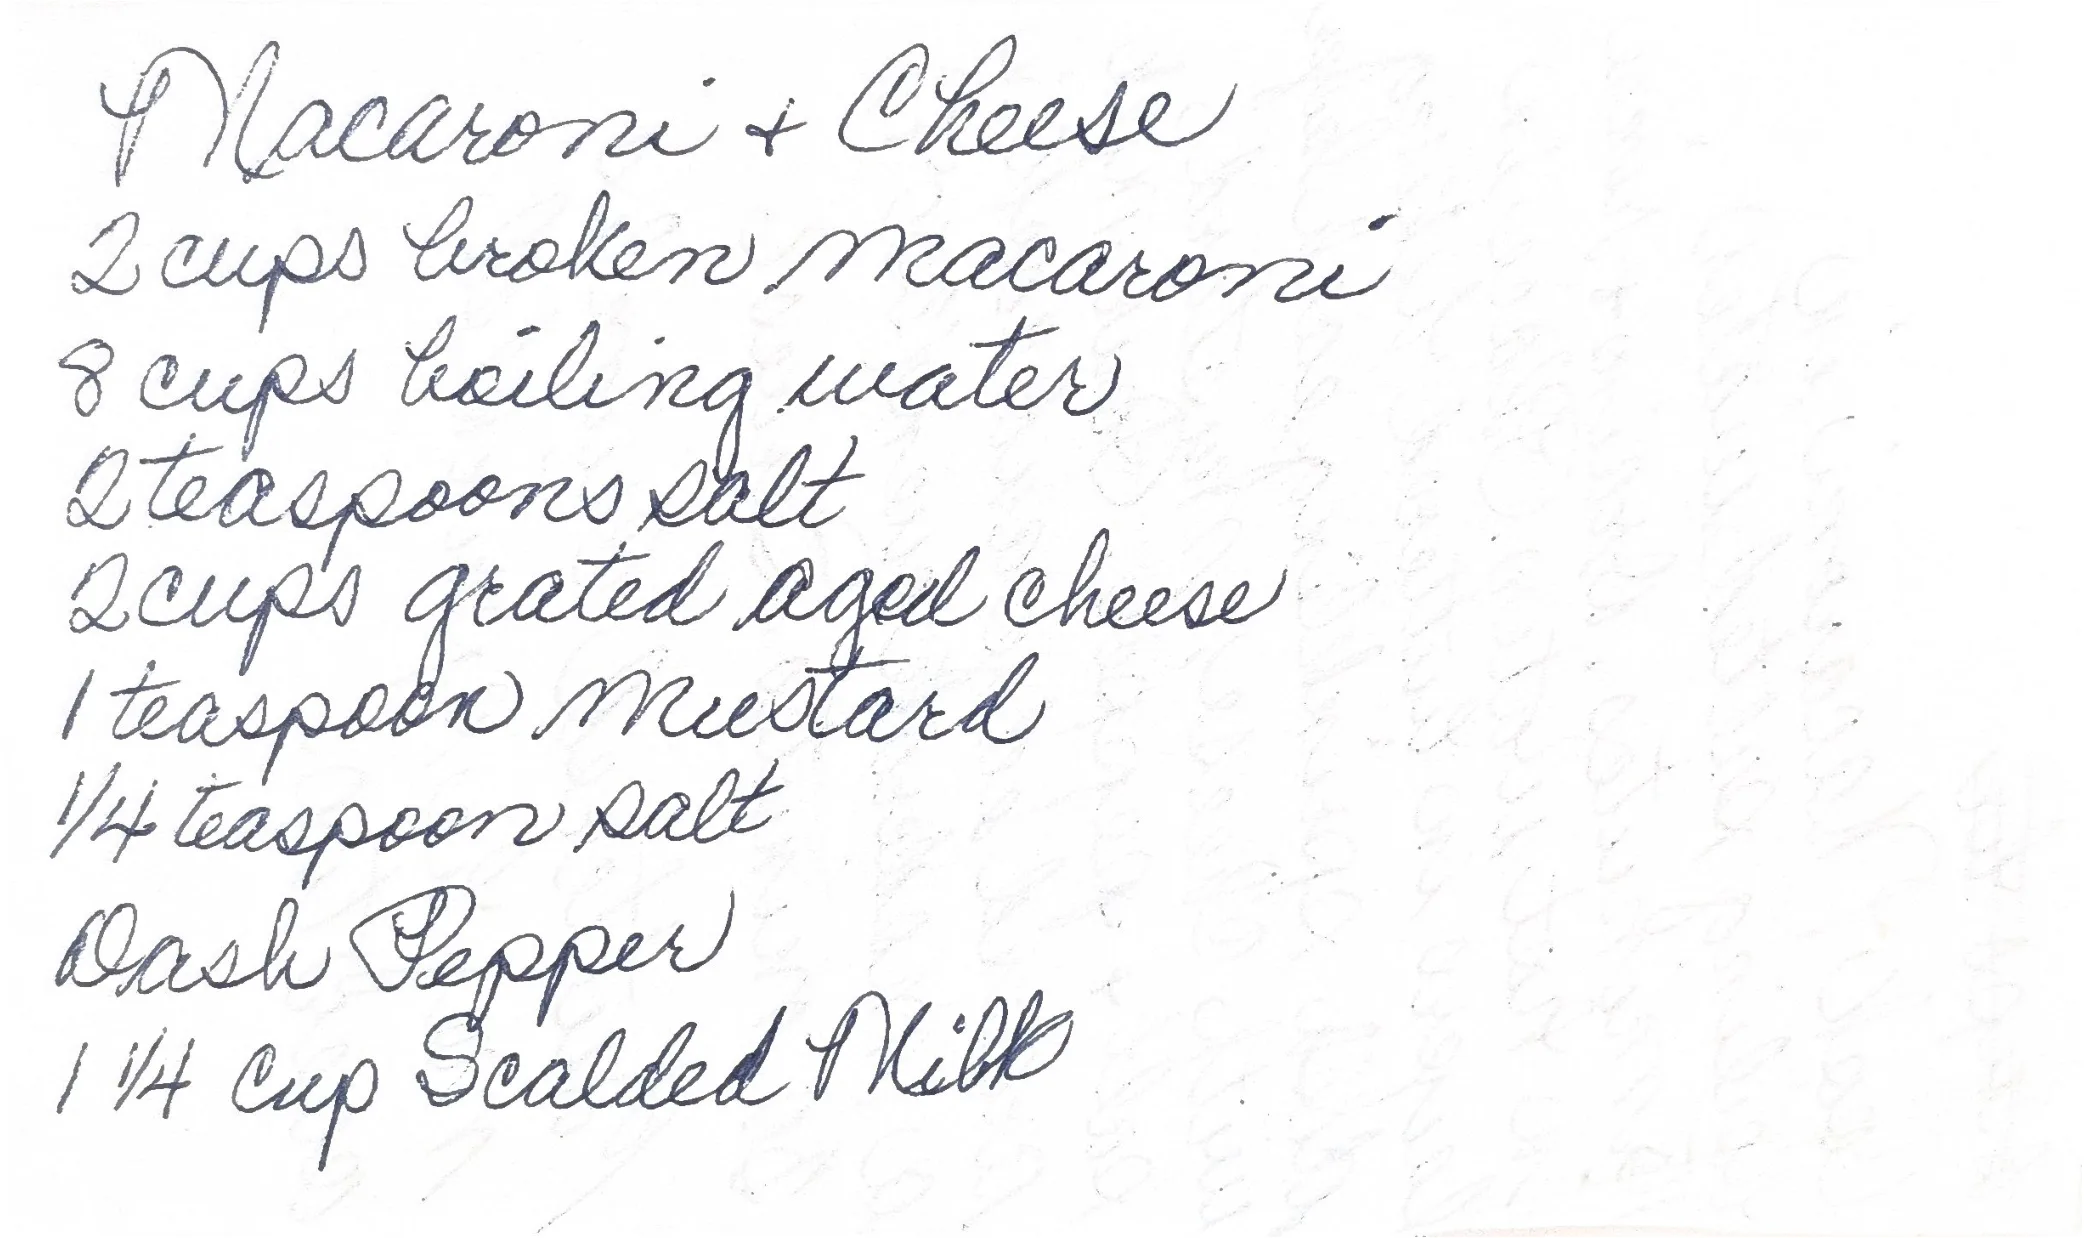 Macaroni + Cheese
2 cups broken macaroni
8 cups boiling water
2 teaspoons salt
2 cups grated aged cheese
1 teaspoon mustard
1/4 teaspoon salt
Dash Pepper
1 1/4 cup Scalded Milk